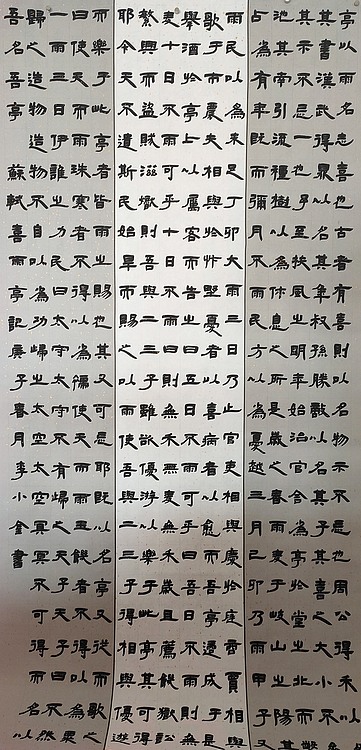 亭以雨名志喜也古者有喜則以名物示不忘也周公得禾以名
其書漢武得鼎以名其年叔孫勝敵以名其子其喜之大小不齊
其示不忘一也予至扶風之明年始治官舍為亭於堂之北而鑿
池其南引流種樹以為休息之所是歲之春雨麥於岐山之陽其
占為有年既而彌月不雨民方以為憂越三月乙卯乃雨甲子又
雨民以為未足丁卯大雨三日乃止官吏相與慶於庭商賈相與
歌於市農夫相與忭於野憂者以喜病者以愈而吾亭適成於是
舉酒於亭上以屬客而告之曰五日不雨可乎曰五日不雨則無
麥十日不雨可乎曰十日不雨則無禾無麥無禾歲且薦饑獄訟
繁興而盜賊滋熾則吾與二三子雖欲優游以樂於此亭其可得
耶今天不遺斯民始旱而賜之以雨使吾與二三子得相與優遊
而樂於此亭者皆雨之賜也其又可忘耶既以名亭又從而歌之
曰使天而雨珠寒者不得以為襦使天而雨玉饑者不得以為粟
一雨三日伊誰之力民曰太守太守不有歸之天子天子曰不然
歸之造物造物不自以為功歸之太空太空冥冥不可得而名以
吾名吾亭 蘇軾喜雨亭記 庚子春月李小金書